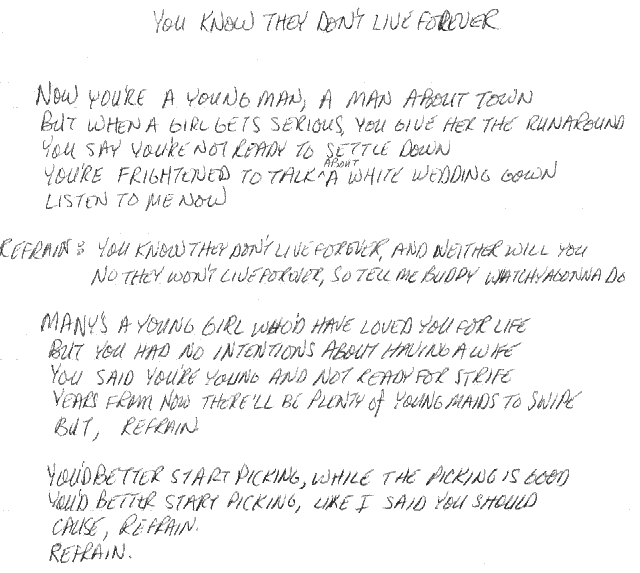 YOU KNOW THEY DON'T LIVE FOREVER
NOW YOU'RE A YOUNG MAN, A MAN ABOUT TOWN
BUT WHEN A GIRL GETS SERIOUS, YOU GIVE HER THE RUNAROUND
YOU SAY YOU'RE NOT READY TO SETTLE DOWN
YOU'RE FRIGHTENED TO TALK ^ABOUT A WHITE WEDDING GOWN
LISTEN TO ME NOW
REFRAIN: YOU KNOW THEY DON'T LIVE FOREVER, AND NEITHER WILL YOU
NO THEY WON'T LIVE FOREVER, SO TELL ME BUDDY WATCHYAGONNA DO
MANY'S A YOUNG GIRL WHO'D HAVE LOVED YOU FOR LIFE
BUT YOU HAD NO INTENTIONS ABOUT HAVING A WIFE
YOU SAID YOU'RE YOUNG AND NOT READY FOR STRIFE
YEARS FROM NOW THERE'LL BE PLENTY of YOUNG MAIDS TO SWIPE
BUT, REFRAIN
YOU'D BETTER START PICKING, WHILE THE PICKING IS GOOD
YOU'D BETTER START PICKING, LIKE I SAID YOU SHOULD
CAUSE, REFRAIN.
REFRAIN.